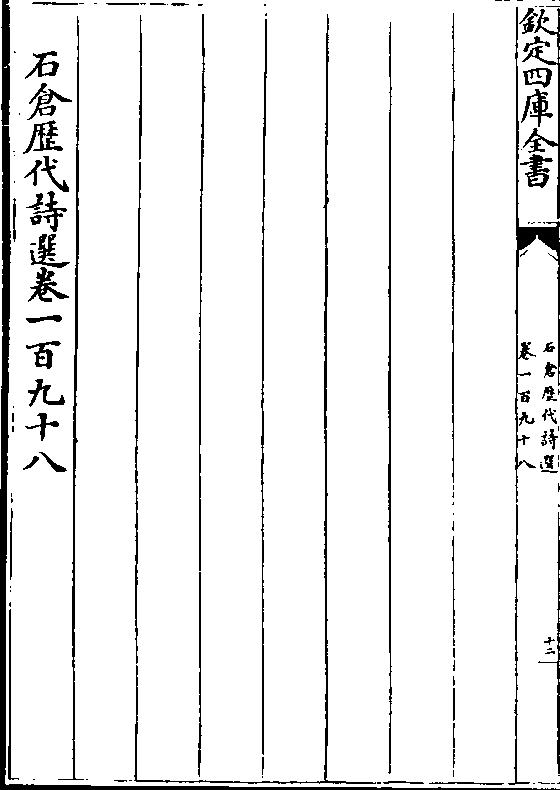 欽定四庫全書
石倉歴代詩選
卷一百九十八
十二
石倉歴代詩選卷一百九十八